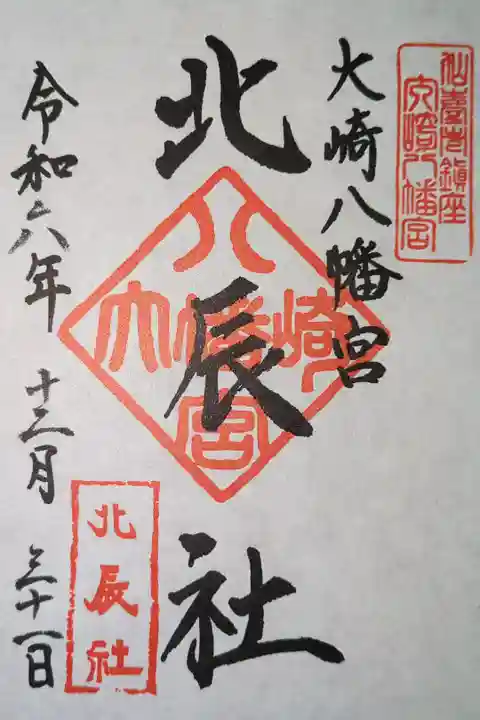 仙臺市鎮座
大崎八幡宮
大崎八幡宮
北辰社
大崎八幡宮
令和六年 十二月 三十一日
北辰社